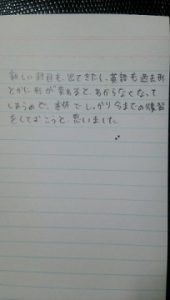 新しい科目も出てきたし、英語も過去形
とかに形が変わると、わからなくなって
しまうので、連休でしっかり今までの復習
をしておこうと思いました。